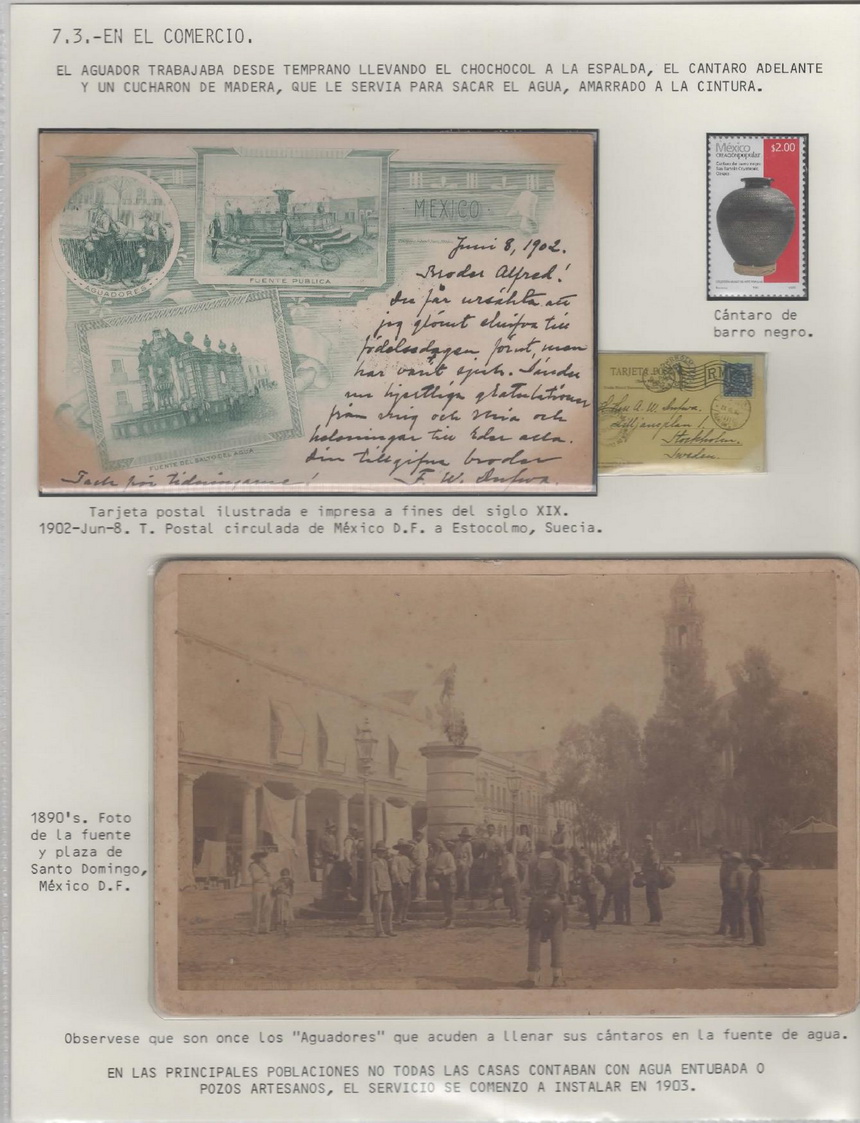 7.3.-EN EL COMERCIO.
EL AGUADOR TRABAJABA DESDE TEMPRANO LLEVANDO EL CHOCHOCOL A LA ESPALDA, EL CANTARO ADELANTE
Y UN CUCHARON DE MADERA, QUE LE SERVIA PARA SACAR EL AGUA, AMARRADO A LA CINTURA.
AGUADORES
FUENTE PUBLICA
MEXICO
FUENTE DEL SALTO DEL AGUA
Juni 8, 1902.
Broder Alfred!
Du får ursäkta att
jag glömt skrifva till
födelsedagen förut men
har varit sjuk. Sänder
nu hjertliga gratulationer
från mig och Mia och
helsningar till Eder alla.
Din tillgifne broder
F. W.
Tack för tidningarne!
México
creaciónpopular
$2.00
Cántaro de barro negro
Cántaro de
barro negro.
TARJETA
A. W.
Lilljansplan 1
Stockholm.
Sweden.
Tarjeta postal ilustrada e impresa a fines del siglo XIX.
1902-Jun-8. T. Postal circulada de México D.F. a Estocolmo, Suecia.
1890's. Foto
de la fuente
y plaza de
Santo Domingo,
México D.F.
Observese que son once los "Aguadores" que acuden a llenar sus cántaros en la fuente de agua.
EN LAS PRINCIPALES POBLACIONES NO TODAS LAS CASAS CONTABAN CON AGUA ENTUBADA O
POZOS ARTESANOS, EL SERVICIO SE COMENZO A INSTALAR EN 1903.